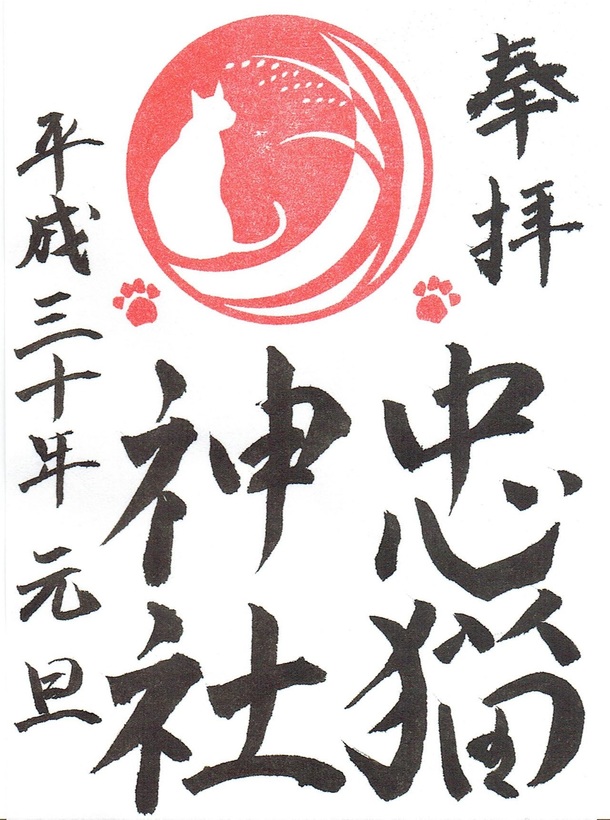 奉拝
忠猫
神社
平成三十年 元旦